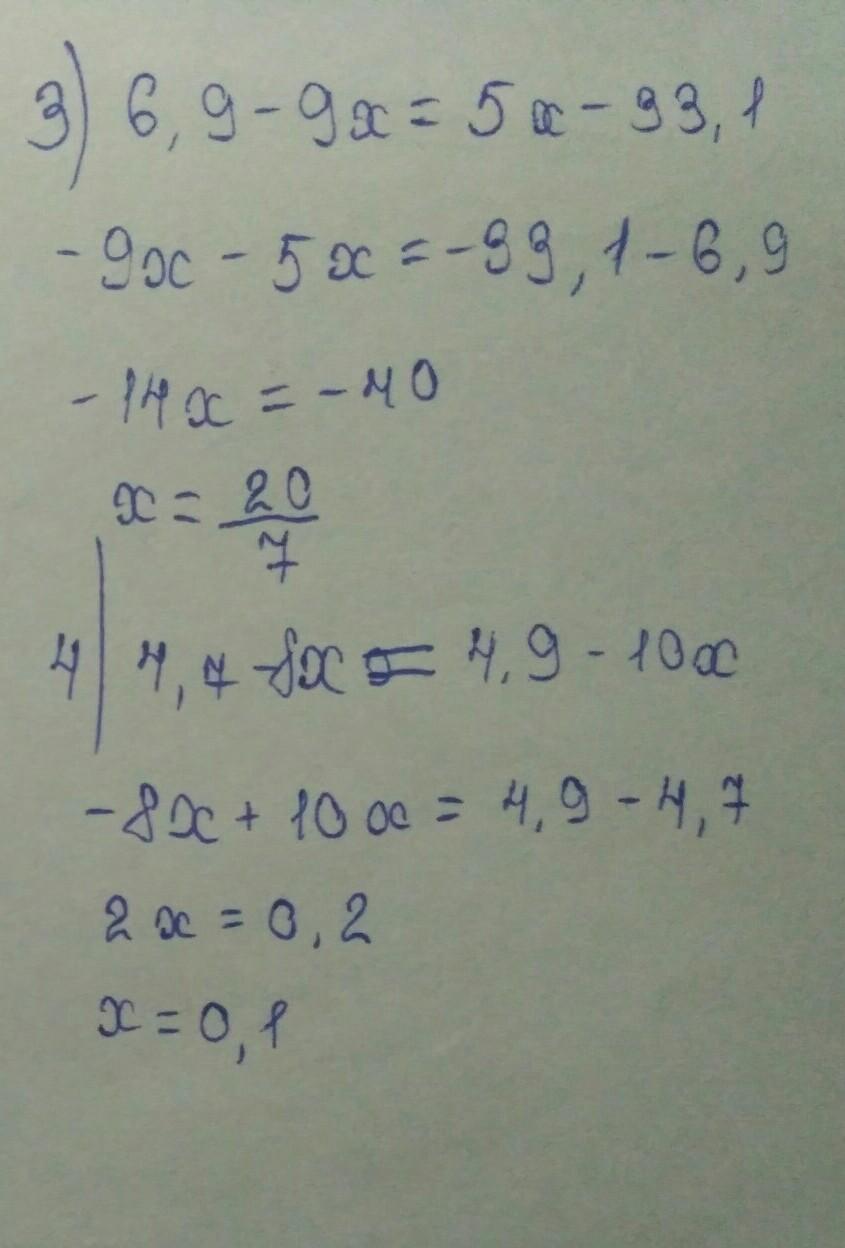 3) 6,9-9x=5x-33,1
-9x-5x=-33,1-6,9
-14x=-40
x=20/7
4| 4,7-8x=4,9-10x
-8x+10x=4,9-4,7
2x=0,2
x=0,1